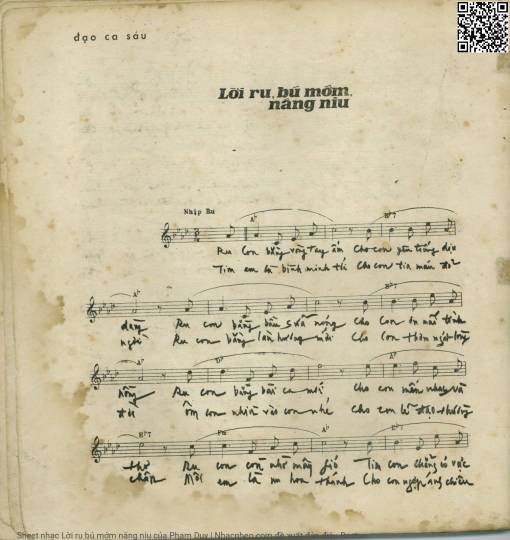 đạo ca sáu
Lời ru, bú mớm,
nâng niu
Nhịp Ba
Ab Bb7
Ru con bằng vòng tay ấm Cho con yên trắng dịu
Tim em là bình minh tới Cho con tin màu đỏ
Ab Bb7
dàng Ru con bằng bầu sữa nóng cho con ấm tình
ngói Ru con bằng làn hương mới Cho con thơm ngát lòng
Ab Ab
nồng Ru con bằng bài ca mới cho con mến nhạc và
đời Ôm con nhìn vào con nhé Cho con thương
Bb7 Fm Ab Bb7
thơ Ru con còn nhờ mây gió Tim con chẳng có vực
chân Môi em là hơn thanh Cho con ngợp áng chiều
Sheet nhạc Lời ru bú mớm nâng niu của Phạm Duy | Nhacnheo.com đề xuất đàn điệu